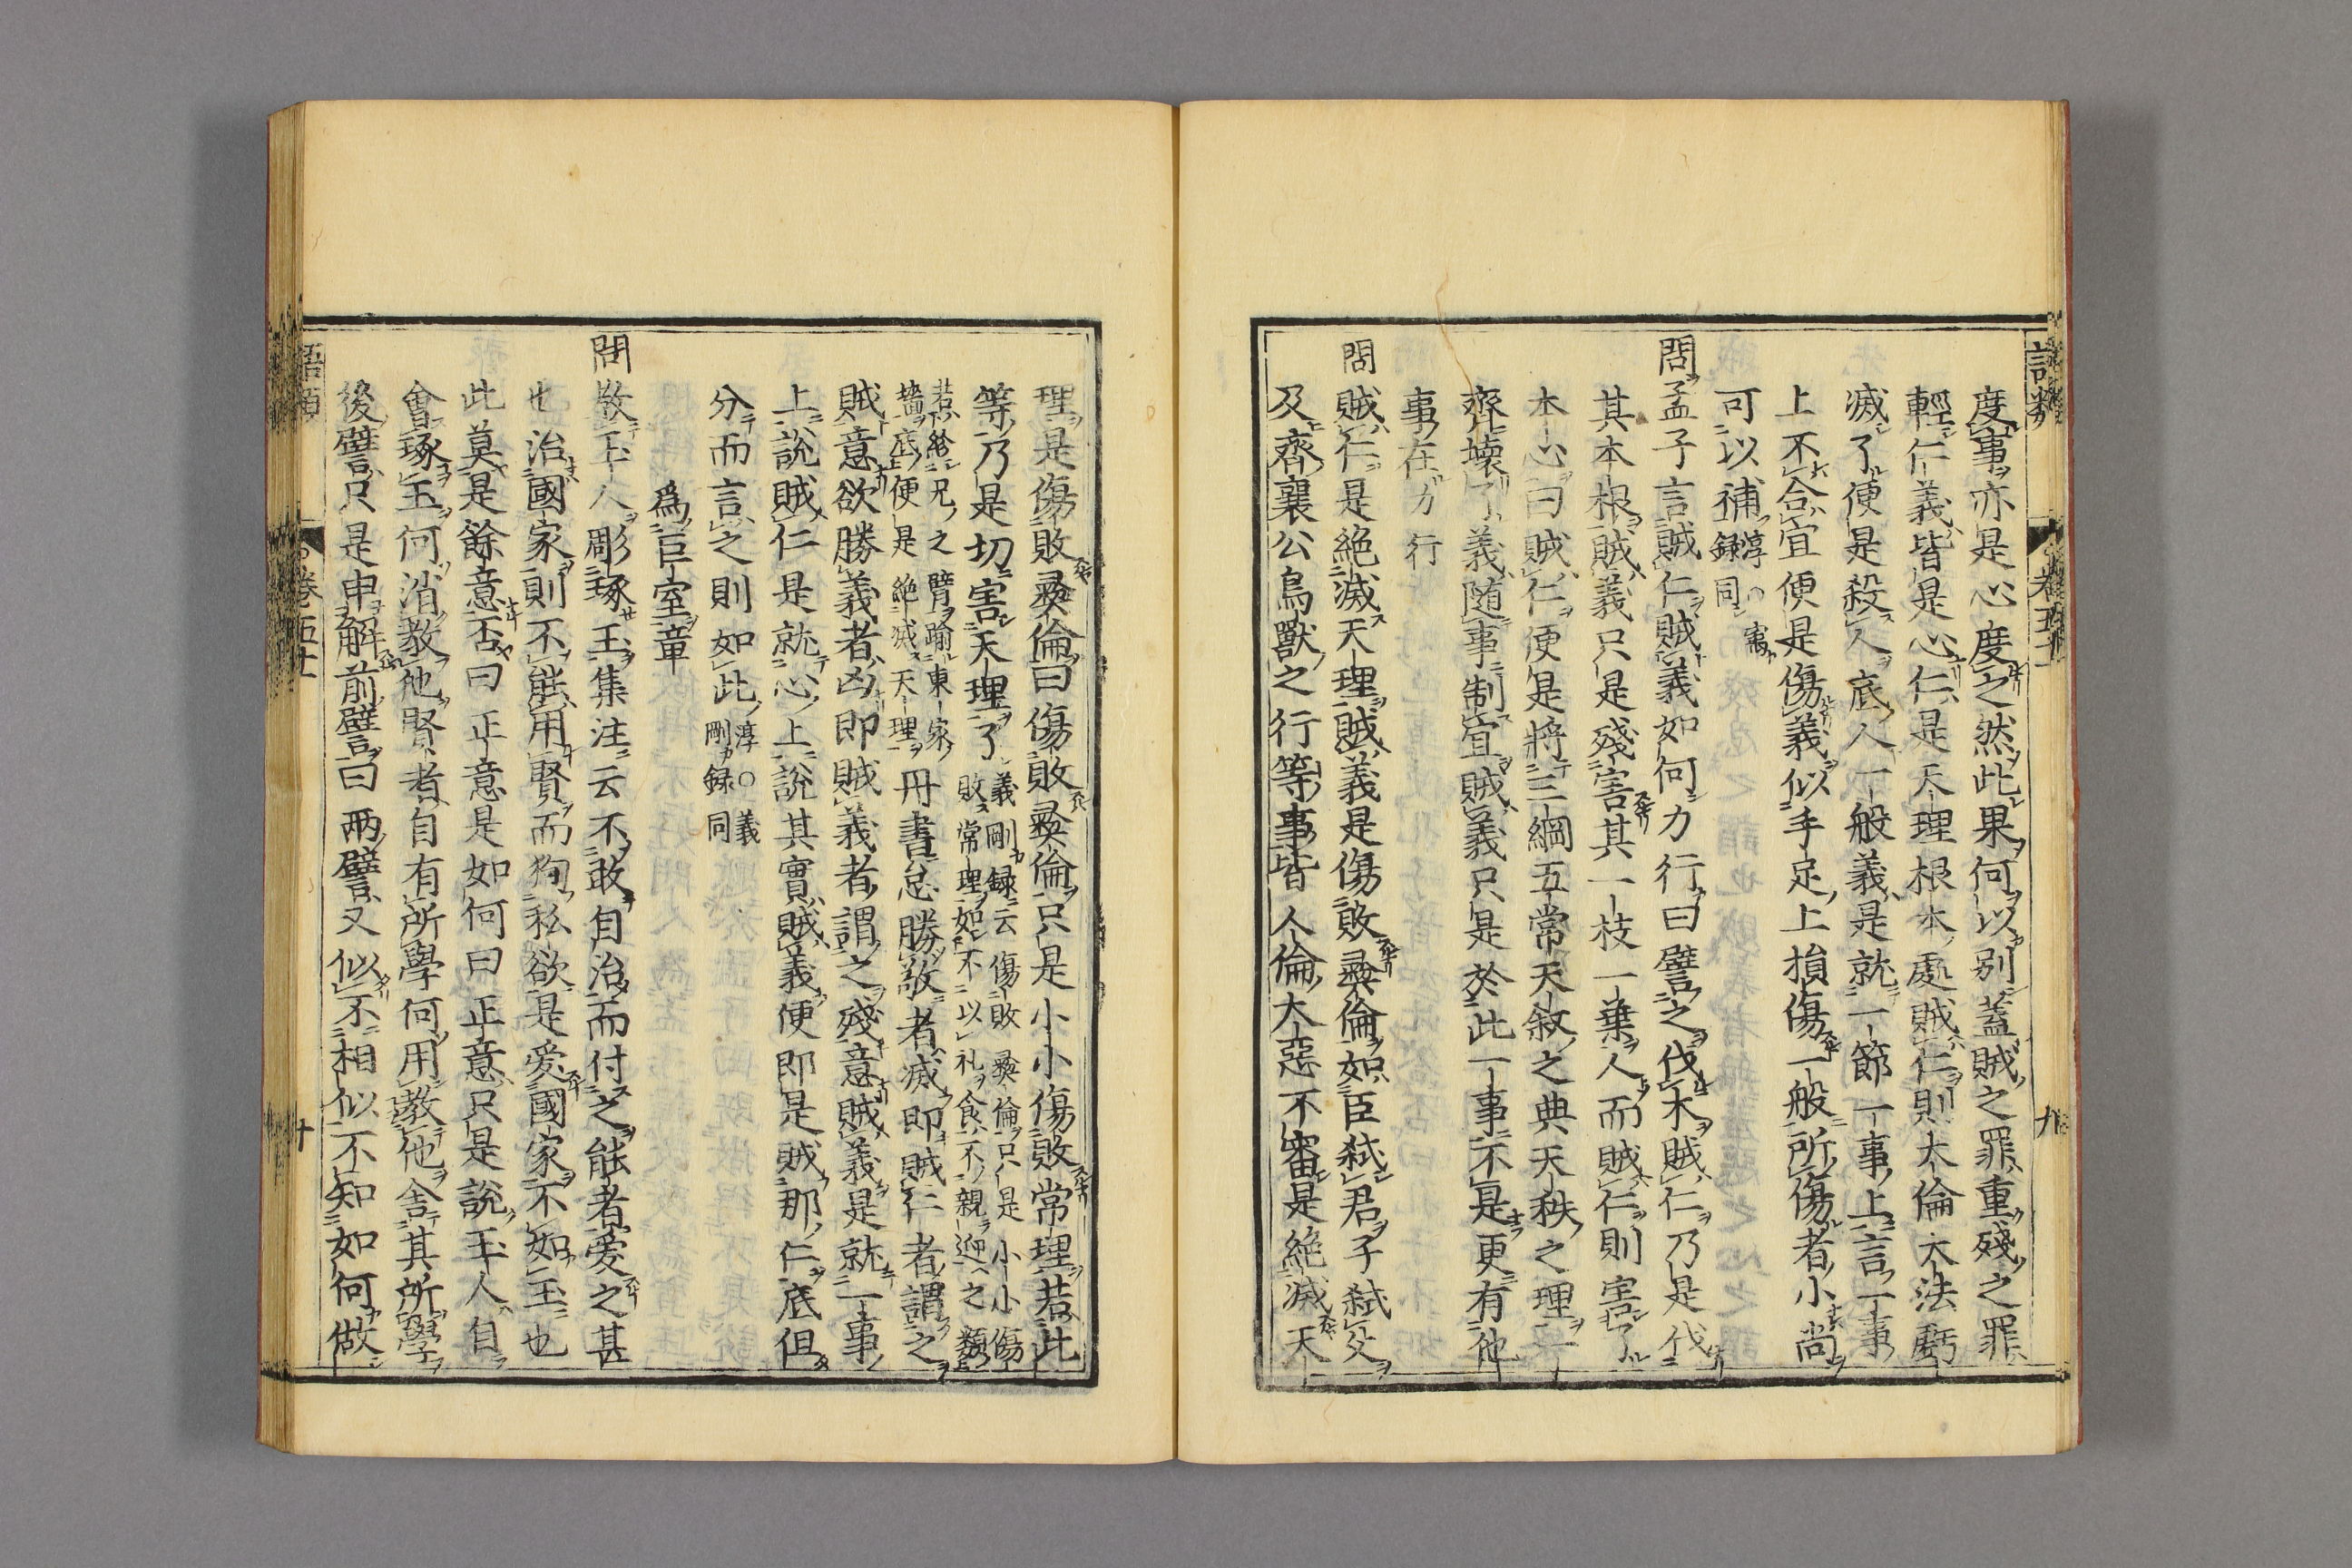 度事亦是心度之然此果何以別蓋賊之罪重殘之罪
輕仁義皆是心仁是天理根本處賊仁則大倫大法虧
滅了便是殺人底人一般義是就一節一事上言一事
上不合宜便是傷義似手足上損傷一般所傷者小尚
可以補淳○寓録同
問孟子言賊仁賊義如何力行曰譬之伐木賊仁乃是伐
其本根賊義只是殘害其一枝一葉人而賊仁則害了
本心曰賊仁便是將三綱五常天敘之典天秩之理一
齊壞了義隨事制宜賊義只是於此一事不是更有他
事在力行
問賊仁是絶滅天理賊義是傷敗彝倫如臣弑君子弑父
及齊襄公鳥獸之行等事皆人倫大惡不審是絶滅天
理是傷敗彝倫曰傷敗彝倫只是小小傷敗常理若此
等乃是切害天理了義剛録云傷敗彝倫只是小小傷敗常理如不以礼食不親迎之類
若紾兄之臂踰東家墻底便是絶滅天理丹書怠勝敬者滅即賊仁者謂之
賊意欲勝義者凶即賊義者謂之殘意賊義是就一事
上說賊仁是就心上說其實賊義便即是賊那仁底但
分而言之則如此淳○義剛録同
爲巨室章
問敎玉人彫琢玉集注云不敢自治而付之能者愛之甚
也治國家則不能用賢而狥私欲是愛國家不如玉也
此莫是餘意否曰正意是如何曰正意只是說玉人自
會琢玉何消教他賢者自有所學何用教他舍其所學
後譬只是申解前譬曰兩譬又似不相似不知如何做
語類
卷五十一
九
語類
卷五十一
十